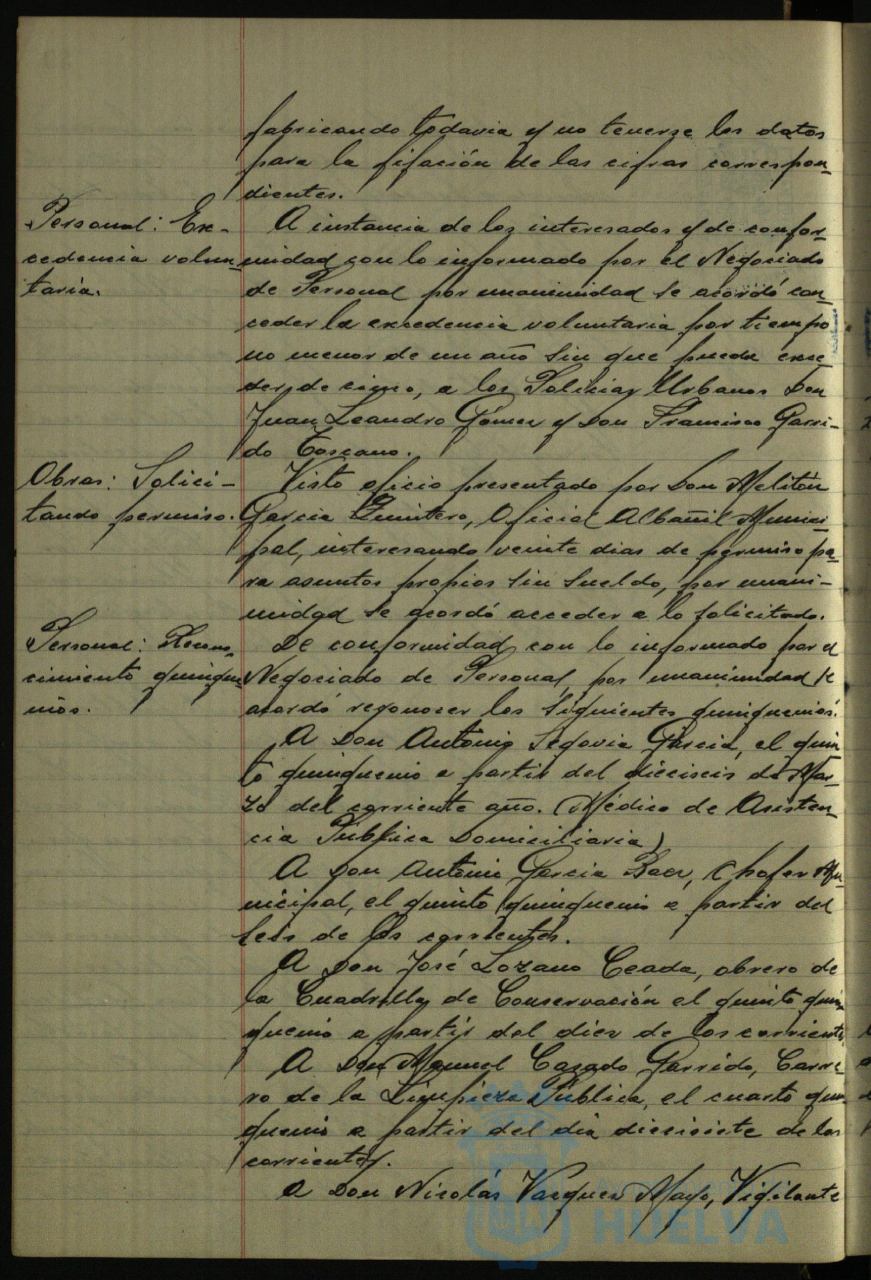 fabricando todavia y no tenerse los datos
para la fijación de las cifras correspon-
dientes.
Personal: Ex-
cedencia volun-
taria.
A instancia de los interesados y de confor-
midad con lo informado por el Negociado
de Personal por unanimidad se acordó con-
ceder la excedencia voluntaria por tiempo
no menor de un año sin que pueda exce
der de cinco, a los Policias Urbanos Don
Juan Leandro Gómez y Don Francisco Garri-
do Toscano.
Obras: Solici-
tando permiso.
Visto oficio presentado por Don Melitón
Garcia Quintero, Oficial Albañil Munici-
pal, interesando veinte dias de permiso pa-
ra asuntos propios sin sueldo, por unani-
midad se acordó acceder a lo solicitado.
Personal: Recono-
cimiento quinque-
nios.
De conformidad con lo informado por el
Negociado de Personal por unanimidad se
acordó reconocer los siguientes quinquenios:
A Don Antonio Segovia Garcia, el quin
to quinquenio a partir del dieciseis de Mar-
zo del corriente año. (Médico de Asisten-
cia Pública Domiciliaria)
A Don Antonio Garcia Baez, Chofer Mu-
nicipal, el quinto quinquenio a partir del
seis de los corrientes.
A Don José Lozano Ceada, obrero de
la Cuadrilla de Conservación el quinto quin-
quenio a partir del diez de los corrientes
A Don Manuel Cazado Garrido, Carre-
ro de la Limpieza Pública, el cuarto quin-
quenio a partir del dia diecisiete de los
corrientes.
A Don Nicolás Vazquez Mayo, Vigilante
HUELVA